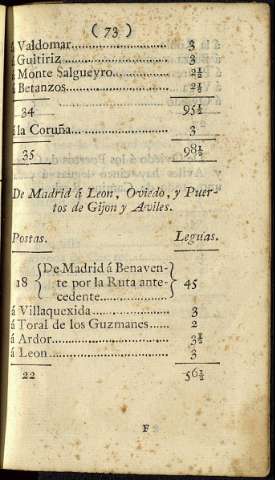 (73)
á Valdomar 3
á Guitiriz 3
á Monte Salgueyro 2½
á Betanzos 2½
34 95½
á la Coruña 3
35 98½
De Madrid á Leon, Oviedo, y Puer-
tos de Gijon y Aviles.
Postas. Leguas.
De Madrid á Benaven-
18 te por la Ruta ante- 45
cedente
á Villaquexida 3
á Toral de los Guzmanes 2
á Ardor 3½
á Leon 3
22 56½
F